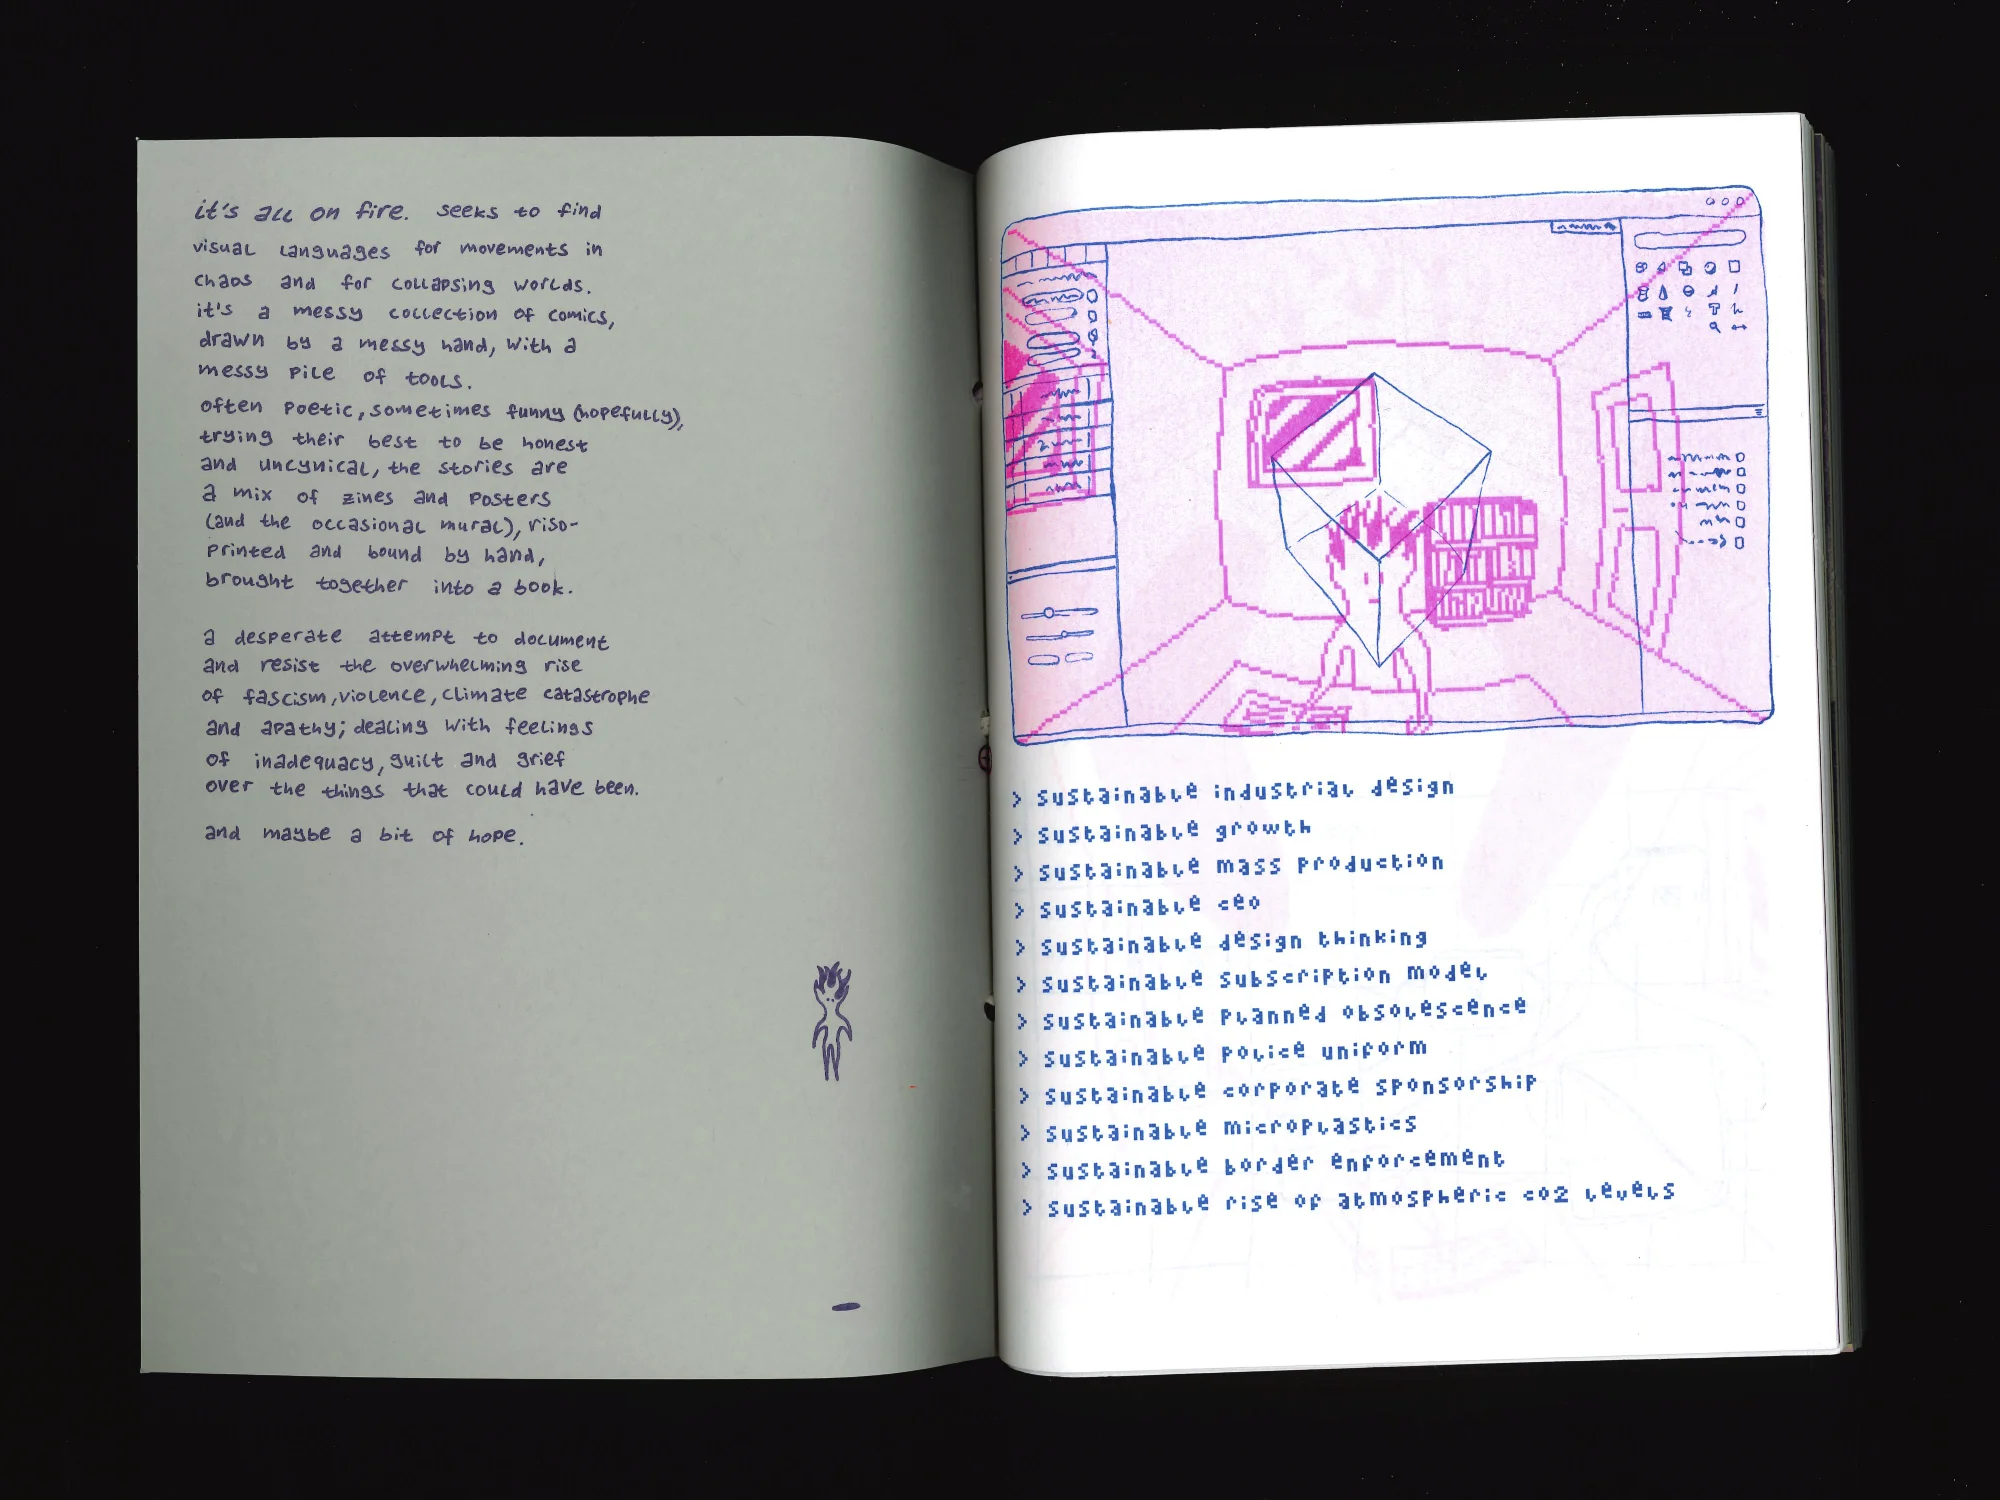 it's all on fire. seeks to find
visual languages for movements in
chaos and for collapsing worlds.
it's a messy collection of comics,
drawn by a messy hand, with a
messy pile of tools.
often poetic, sometimes funny (hopefully),
trying their best to be honest
and uncynical, the stories are
a mix of zines and posters
(and the occasional mural), riso-
printed and bound by hand,
brought together into a book.
a desperate attempt to document
and resist the overwhelming rise
of fascism, violence, climate catastrophe
and apathy; dealing with feelings
of inadequacy, guilt and grief
over the things that could have been.
and maybe a bit of hope.
> sustainable industrial design
> sustainable growth
> sustainable mass production
> sustainable ceo
> sustainable design thinking
> sustainable subscription model
> sustainable planned obsolescence
> sustainable police uniform
> sustainable corporate sponsorship
> sustainable microplastics
> sustainable border enforcement
> sustainable rise of atmospheric co2 levels